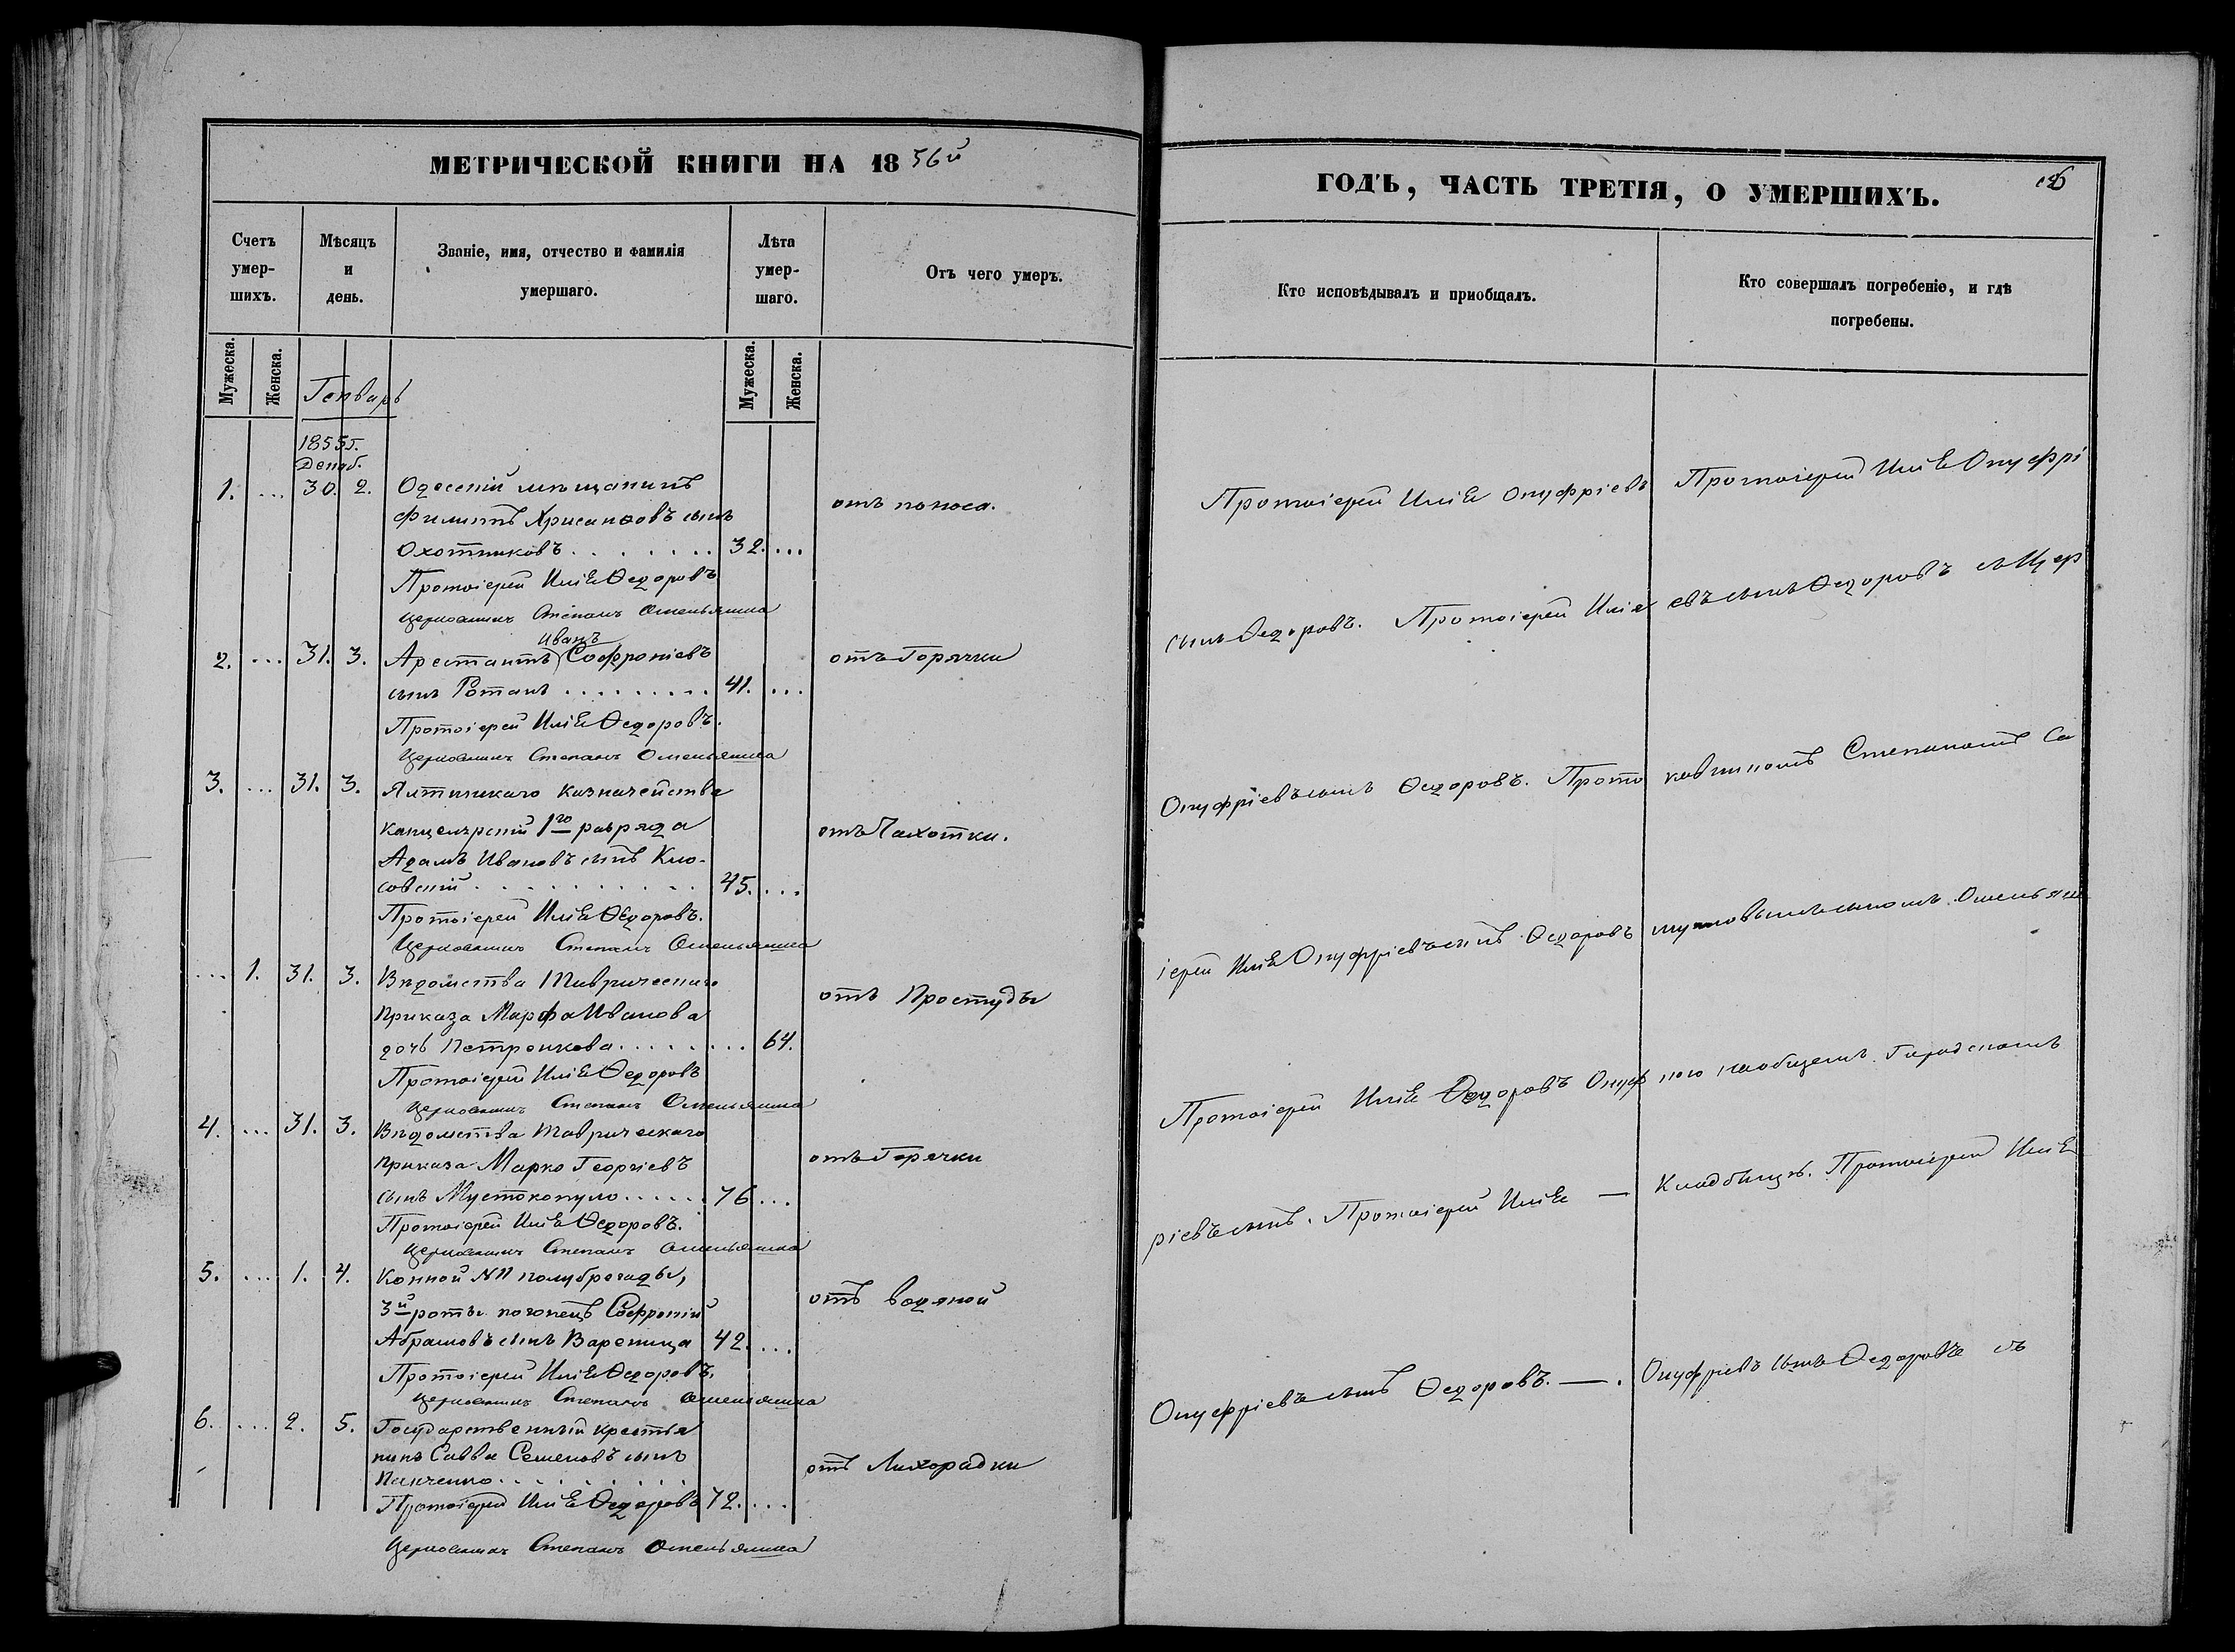 МЕТРИЧЕСКОЙ КНИГИ НА 1856й
Счетъ умер-шихъ.
Мѣсяцъ и день.
Званіе, имя, отчество и фамилія умершаго.
Лѣта умер-шаго.
Отъ чего умеръ.
Мужеска.
Женска.
Генварь
Мужеска.
Женска.
1855г.
Декаб.
1. ... 30. 2. Одесскій мѣщанинъ
Филиппъ Хрисанѳовъ сынъ
отъ поноса.
Охотниковъ . . . . . . . 32. ...
Протоіерей Илія Ѳедоровъ
Церковникъ Степанъ Омельянша
Иванъ
2. ... 31. 3. Арестантъ Софроніевъ
отъ Горячки
сынъ Ротань . . . . . . . . . 41. ...
Протоіерей Илія Ѳедоровъ.
Церковникъ Степанъ Омельянша
3. ... 31. 3. Ялтинскаго Казначейства
канцелярскій 1го разряда
отъ Чахотки.
Адамъ Ивановъ сынъ Кио-
совскій . . . . . . . . . . 45. ...
Протоіерей Илія Ѳедоровъ.
Церковникъ Степанъ Омельянша
... 1. 31. 3. Вѣдомства Таврическаго
отъ Простуды
приказа Марфа Иванова
дочь Петренкова . . . . . . . 64.
Протоіерей Илія Ѳедоровъ
Церковникъ Степанъ Омельянша
4. ... 31. 3. Вѣдомства Таврическаго
приказа Марко Георгіевъ
отъ Горячки
сынъ Мустокопуло . . . . . . 76 ...
Протоіерей Илія Ѳедоровъ.
Церковникъ Степанъ Омельянша
5. ... 1. 4. Конной N11 полубрегады,
3й роты погонецъ Софроній
отъ водяной
Абрамовъ сынъ Вареница 42. ...
Протоіерей Илія Ѳедоровъ.
Церковникъ Степанъ Омельянша
6. ... 2. 5. Государственный крестья
нинъ Савва Семеновъ сынъ
отъ Лихорадки
Панченко . . . . . . . . .
Протоіерей Илія Ѳедоровъ 72. ...
Церковникъ Степанъ Омельянша
ГОДЪ, ЧАСТЬ ТРЕТІЯ, О УМЕРШИХЪ.
Кто исповѣдывалъ и приобщалъ.
Кто совершалъ погребеніе, и гдѣ погребены.
Протоіерей Илія Онуфріевъ
сынъ Ѳедоровъ. Протоіерей Илія
Онуфріевъ сынъ Ѳедоровъ. Прото
іерей Илія Онуфріевъ сынъ Ѳедоровъ
Протоіерей Илія Ѳедоровъ Онуф
ріевъ сынъ. Протоіерей Илія —
Онуфріевъ сынъ Ѳедоровъ. — .
Протоіерей Илія Онуфрі
евъ сынъ Ѳедоровъ съ Цер
ковникомъ Степаномъ Са
муиловымъ сыномъ Омельян
шою на общемъ Городскомъ
Кладбищѣ. Протоіерей Илія
Онуфріевъ сынъ Ѳедоровъ съ